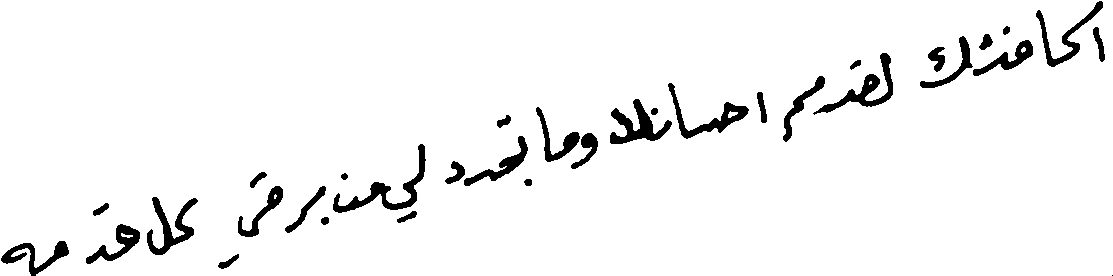 اكافئك لقديم احسانك وما تجدد لي من برك في كل خدمه